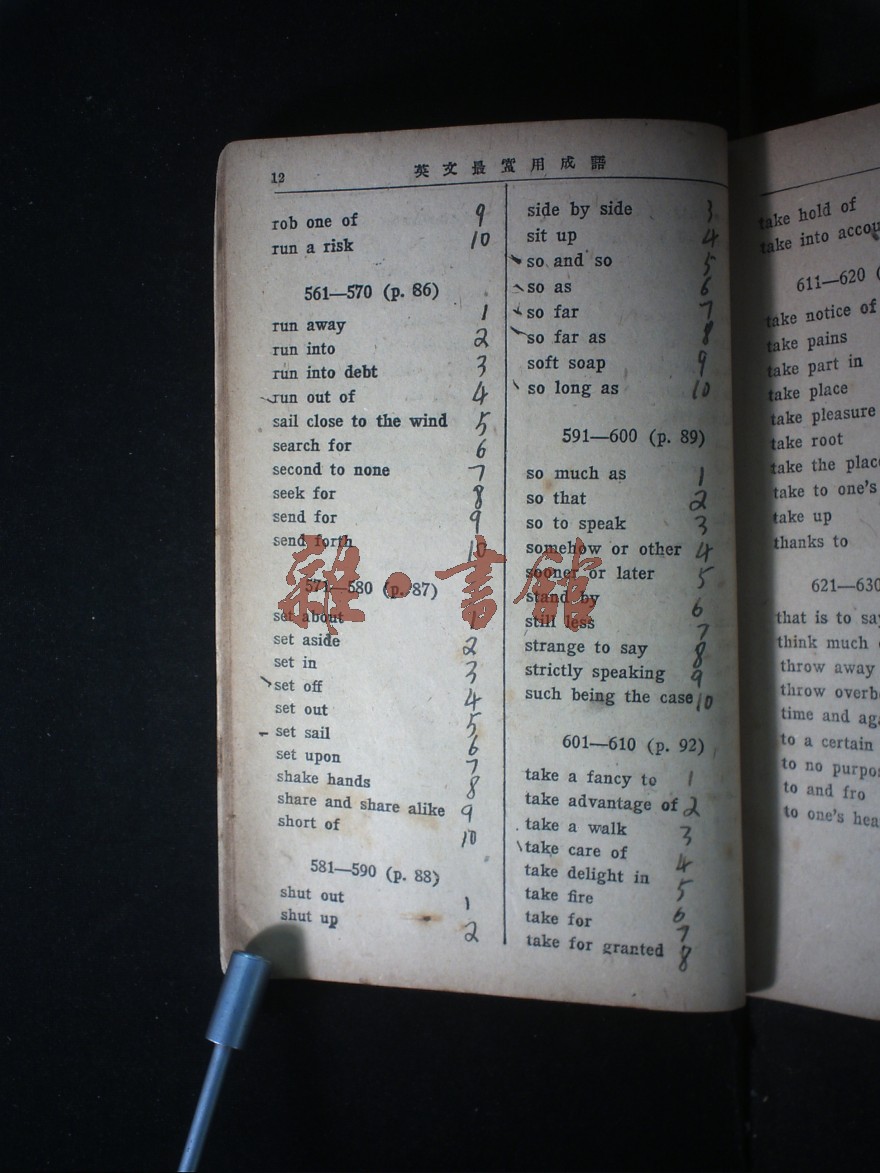 12
英文最實用成語
rob one of 9
run a risk 10
561—570 (p. 86)
run away 1
run into 2
run into debt 3
run out of 4
sail close to the wind 5
search for 6
second to none 7
seek for 8
send for 9
send forth 10
571—580 (p. 87)
set about 1
set aside 2
set in 3
set off 4
set out 5
set sail 6
set upon 7
shake hands 8
share and share alike 9
short of 10
581—590 (p. 88)
shut out 1
shut up 2
side by side 3
sit up 4
so and so 5
so as 6
so far 7
so far as 8
soft soap 9
so long as 10
591—600 (p. 89)
so much as 1
so that 2
so to speak 3
somehow or other 4
sooner or later 5
stand by 6
still less 7
strange to say 8
strictly speaking 9
such being the case 10
601—610 (p. 92)
take a fancy to 1
take advantage of 2
take a walk 3
take care of 4
take delight in 5
take fire 6
take for 7
take for granted 8
take hold of
take into
611—620
take notice of
take pains
take part in
take place
take pleasure
take root
take the
take to one's
take up
thanks to
621—630
that is to
think much
throw away
throw
time and
to a certain
to no
to and fro
to one's
雜·書館